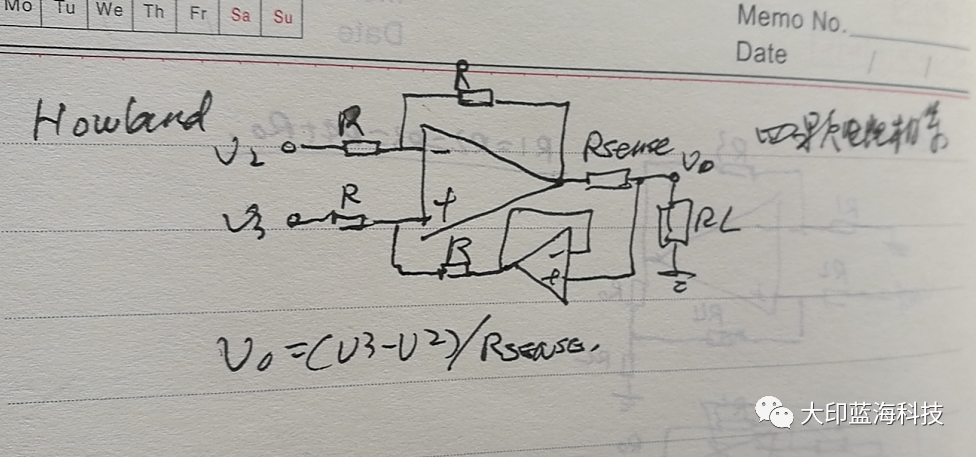 Mo Tu We Th Fr Sa Su
Memo No.
Date
Howland
四颗电阻相等
R
R
U2
Rsense
U0
R
U3
-
+
RL
R
-
+
U0=(U3-U2)/RSENSE.
大印蓝海科技